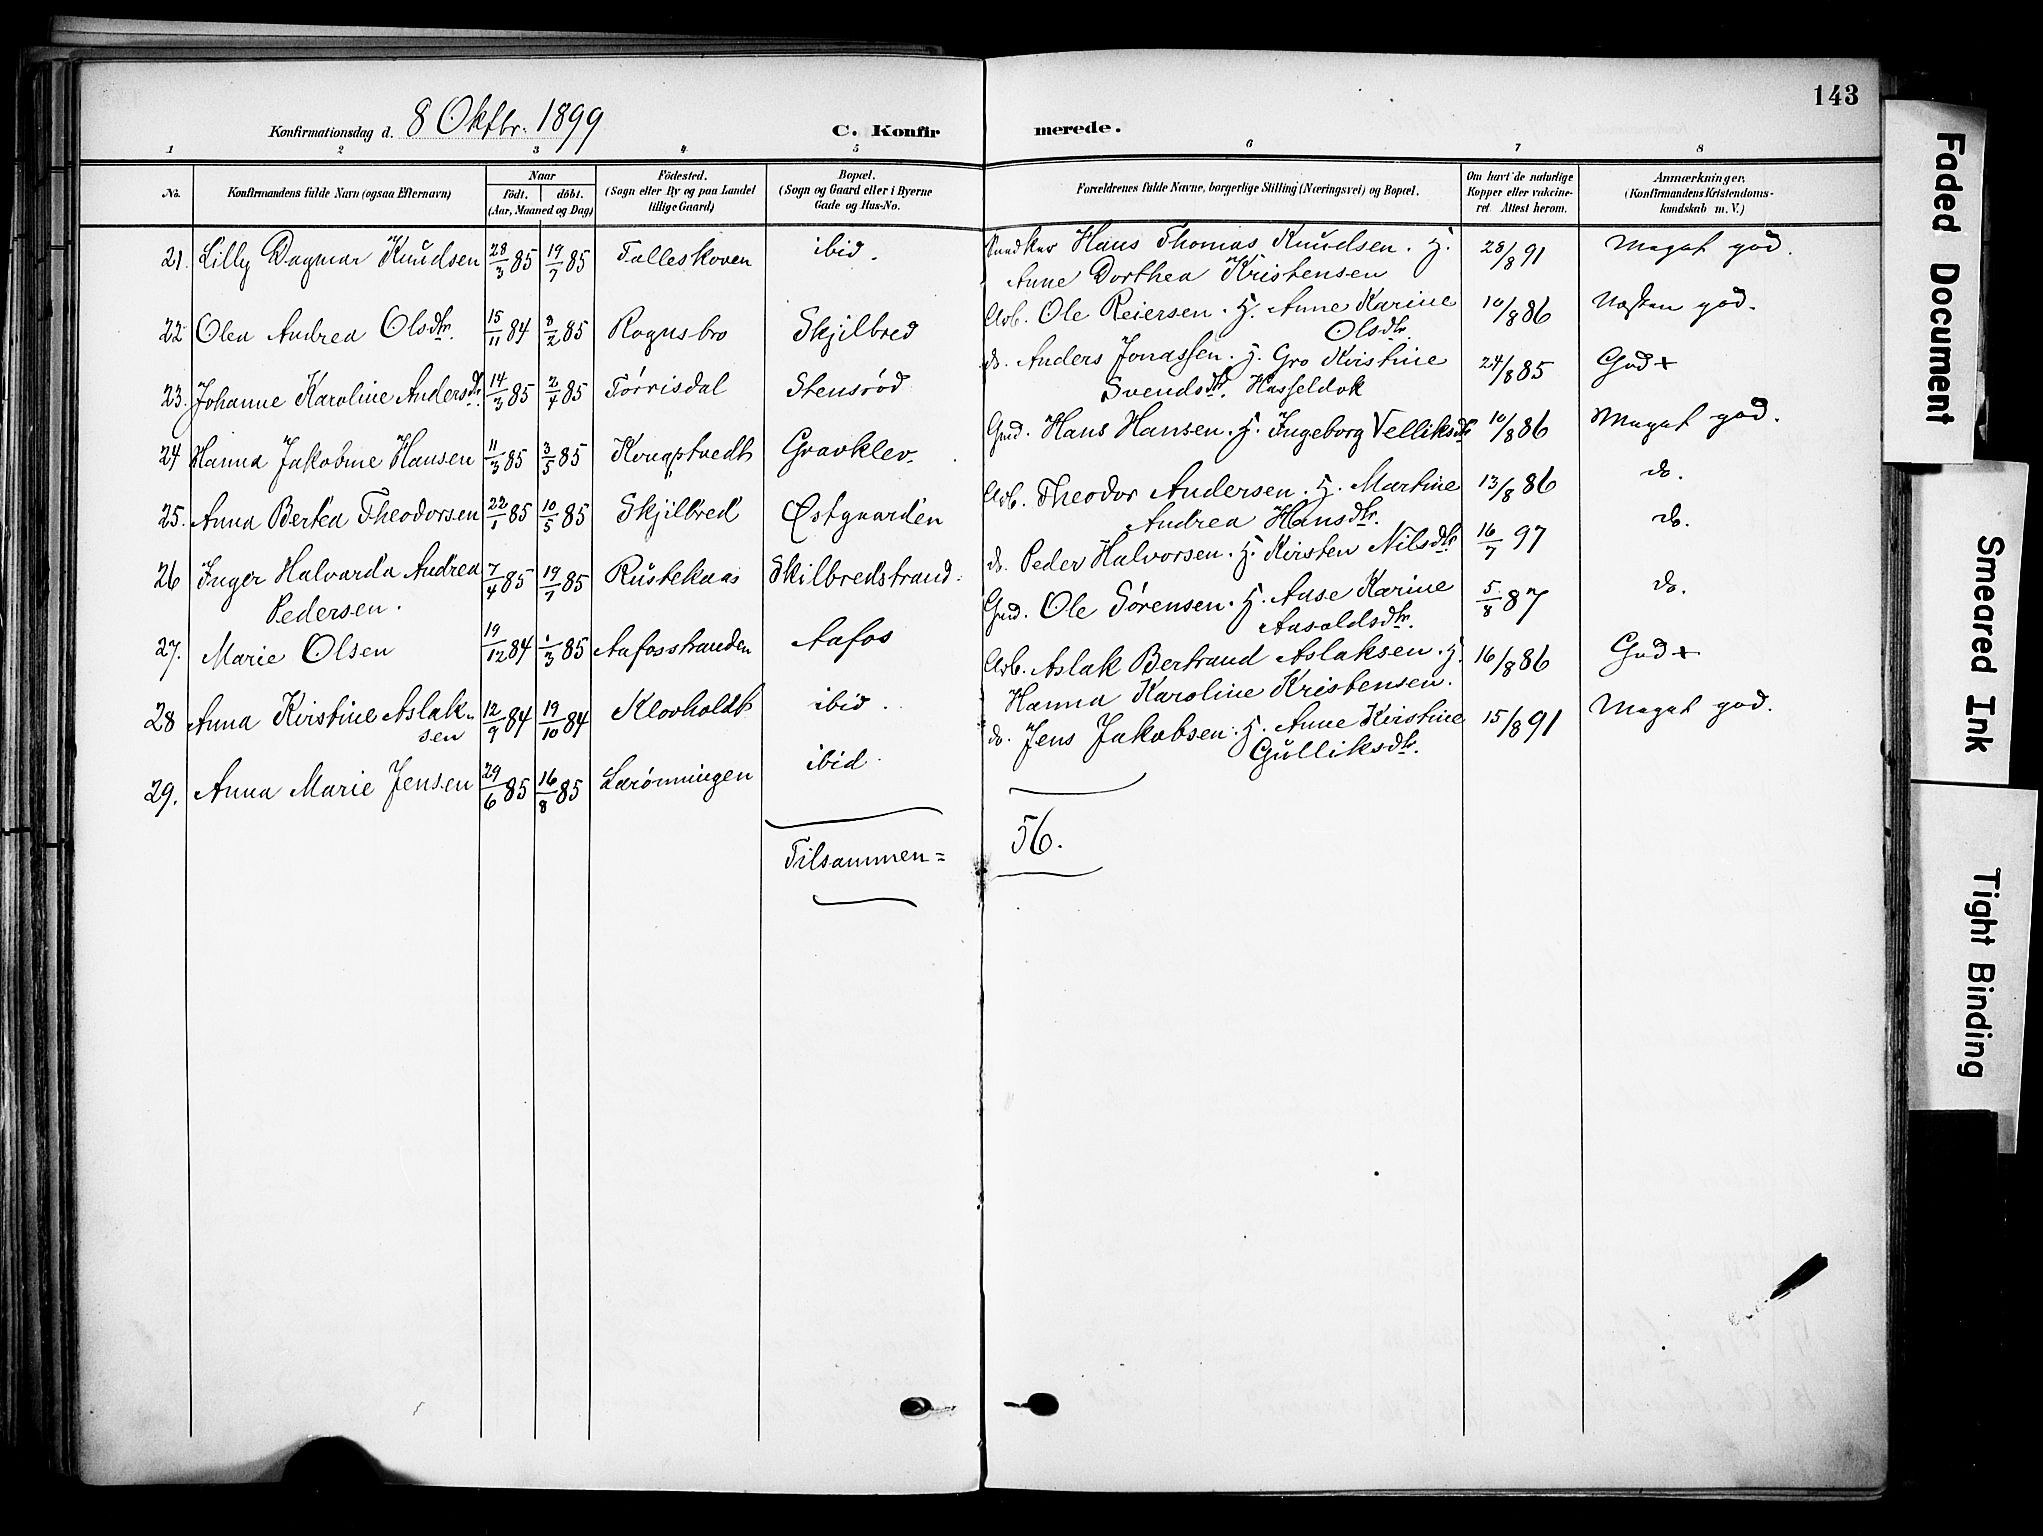 143
Konfirmationsdag d. 8 Oktbr. 1899 C. Konfirmerede.
1 2 3 4 5 6 7 8
No. Konfirmandens fulde Navn (ogsaa Efternavn) Naar født. døbt. (Aar, Maaned og Dag) Fødested. (Sogn eller By og paa Landet tillige Gaard) Bopæl. (Sogn og Gaard eller i Byerne Gade og Hus-No. Forældrenes fulde Navne, borgerlige Stilling (Næringsvei) og Bopæl. Om havt de naturlige Kopper eller vakcineret. Attest herom. Anmærkninger. (Konfirmandens Kristendomskundskab m. V.)
21. Lilly Dagmar Knudsen 28/3 85 19/7 85 Falleskoven ibid. Hans Thomas Knudsen. H. 28/8 91 Meget god.
Anne Dorthea Kristensen
22 Olea Andrea Olsdtr. 15/11 84 8/2 85 Rognsbro Skjilbred Arb. Ole Reiersen. H. Anne Karine 10/8 86 Næsten god.
Olsdtr.
23. Johanne Karoline Andersdtr. 14/3 85 2/4 85 Tørrisdal Stensrød do. Anders Jonassen. H. Gro Kristine 24/8 85 God +
Svendsdtr. Hasseldok
24 Hanna Jakobine Hansen 11/3 85 3/5 85 Gravklev Gmd. Hans Hansen. H. Ingeborg Velliksdtr 10/8 86 Meget god.
25. Anna Bertea Theodorsen 22/1 85 10/5 85 Skjilbred Østgaarden Arb. Theodor Andersen. H. Martine 13/8 86 do.
Andrea Hansdtr.
26 Inger Halvarda Andrea 7/4 85 19/7 85 Rustekaas Skilbredstrand. do. Peder Halvorsen. H. Kirsten Nilsdtr 16/7 97 do.
Pedersen.
27. Marie Olsen 19/12 84 1/3 85 Aafosstranden Aafos Gmd. Ole Sørensen. H. Anse Karine 5/8 87 do.
Aasoldsdtr.
28 Anna Kirstine Aslaksen 12/9 84 19/10 84 Klovholdt ibid. Arb. Aslak Bertrand Aslaksen. H. 16/8 86 God +
Hanna Karoline Kristensen.
29. Anna Marie Jensen 29/6 85 16/8 85 Lærønningen ibid. do. Jens Jakobsen. H. Anne Kirstine 15/8 91 Meget god.
Gulliksdtr.
Tilsammen = 56.
Faded Document
Smeared Ink
Tight Binding